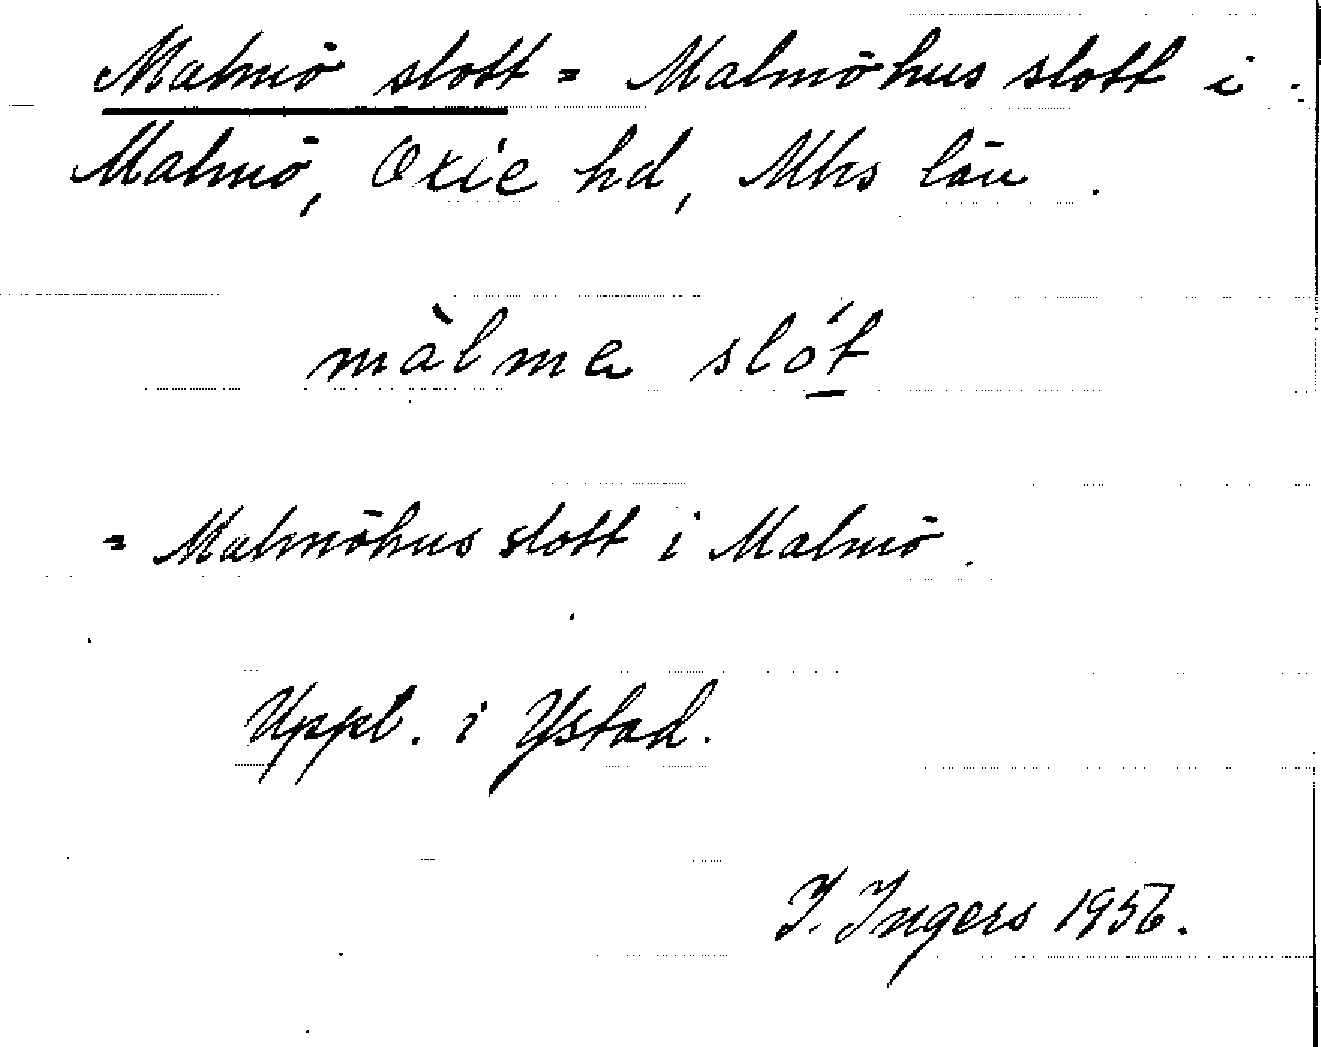 Malmö slott = Malmöhus slott i
Malmö, Oxie hd, Mhs län.
màlmə slót
= Malmöhus slott i Malmö.
Uppt. i Ystad.
I. Ingers 1956.